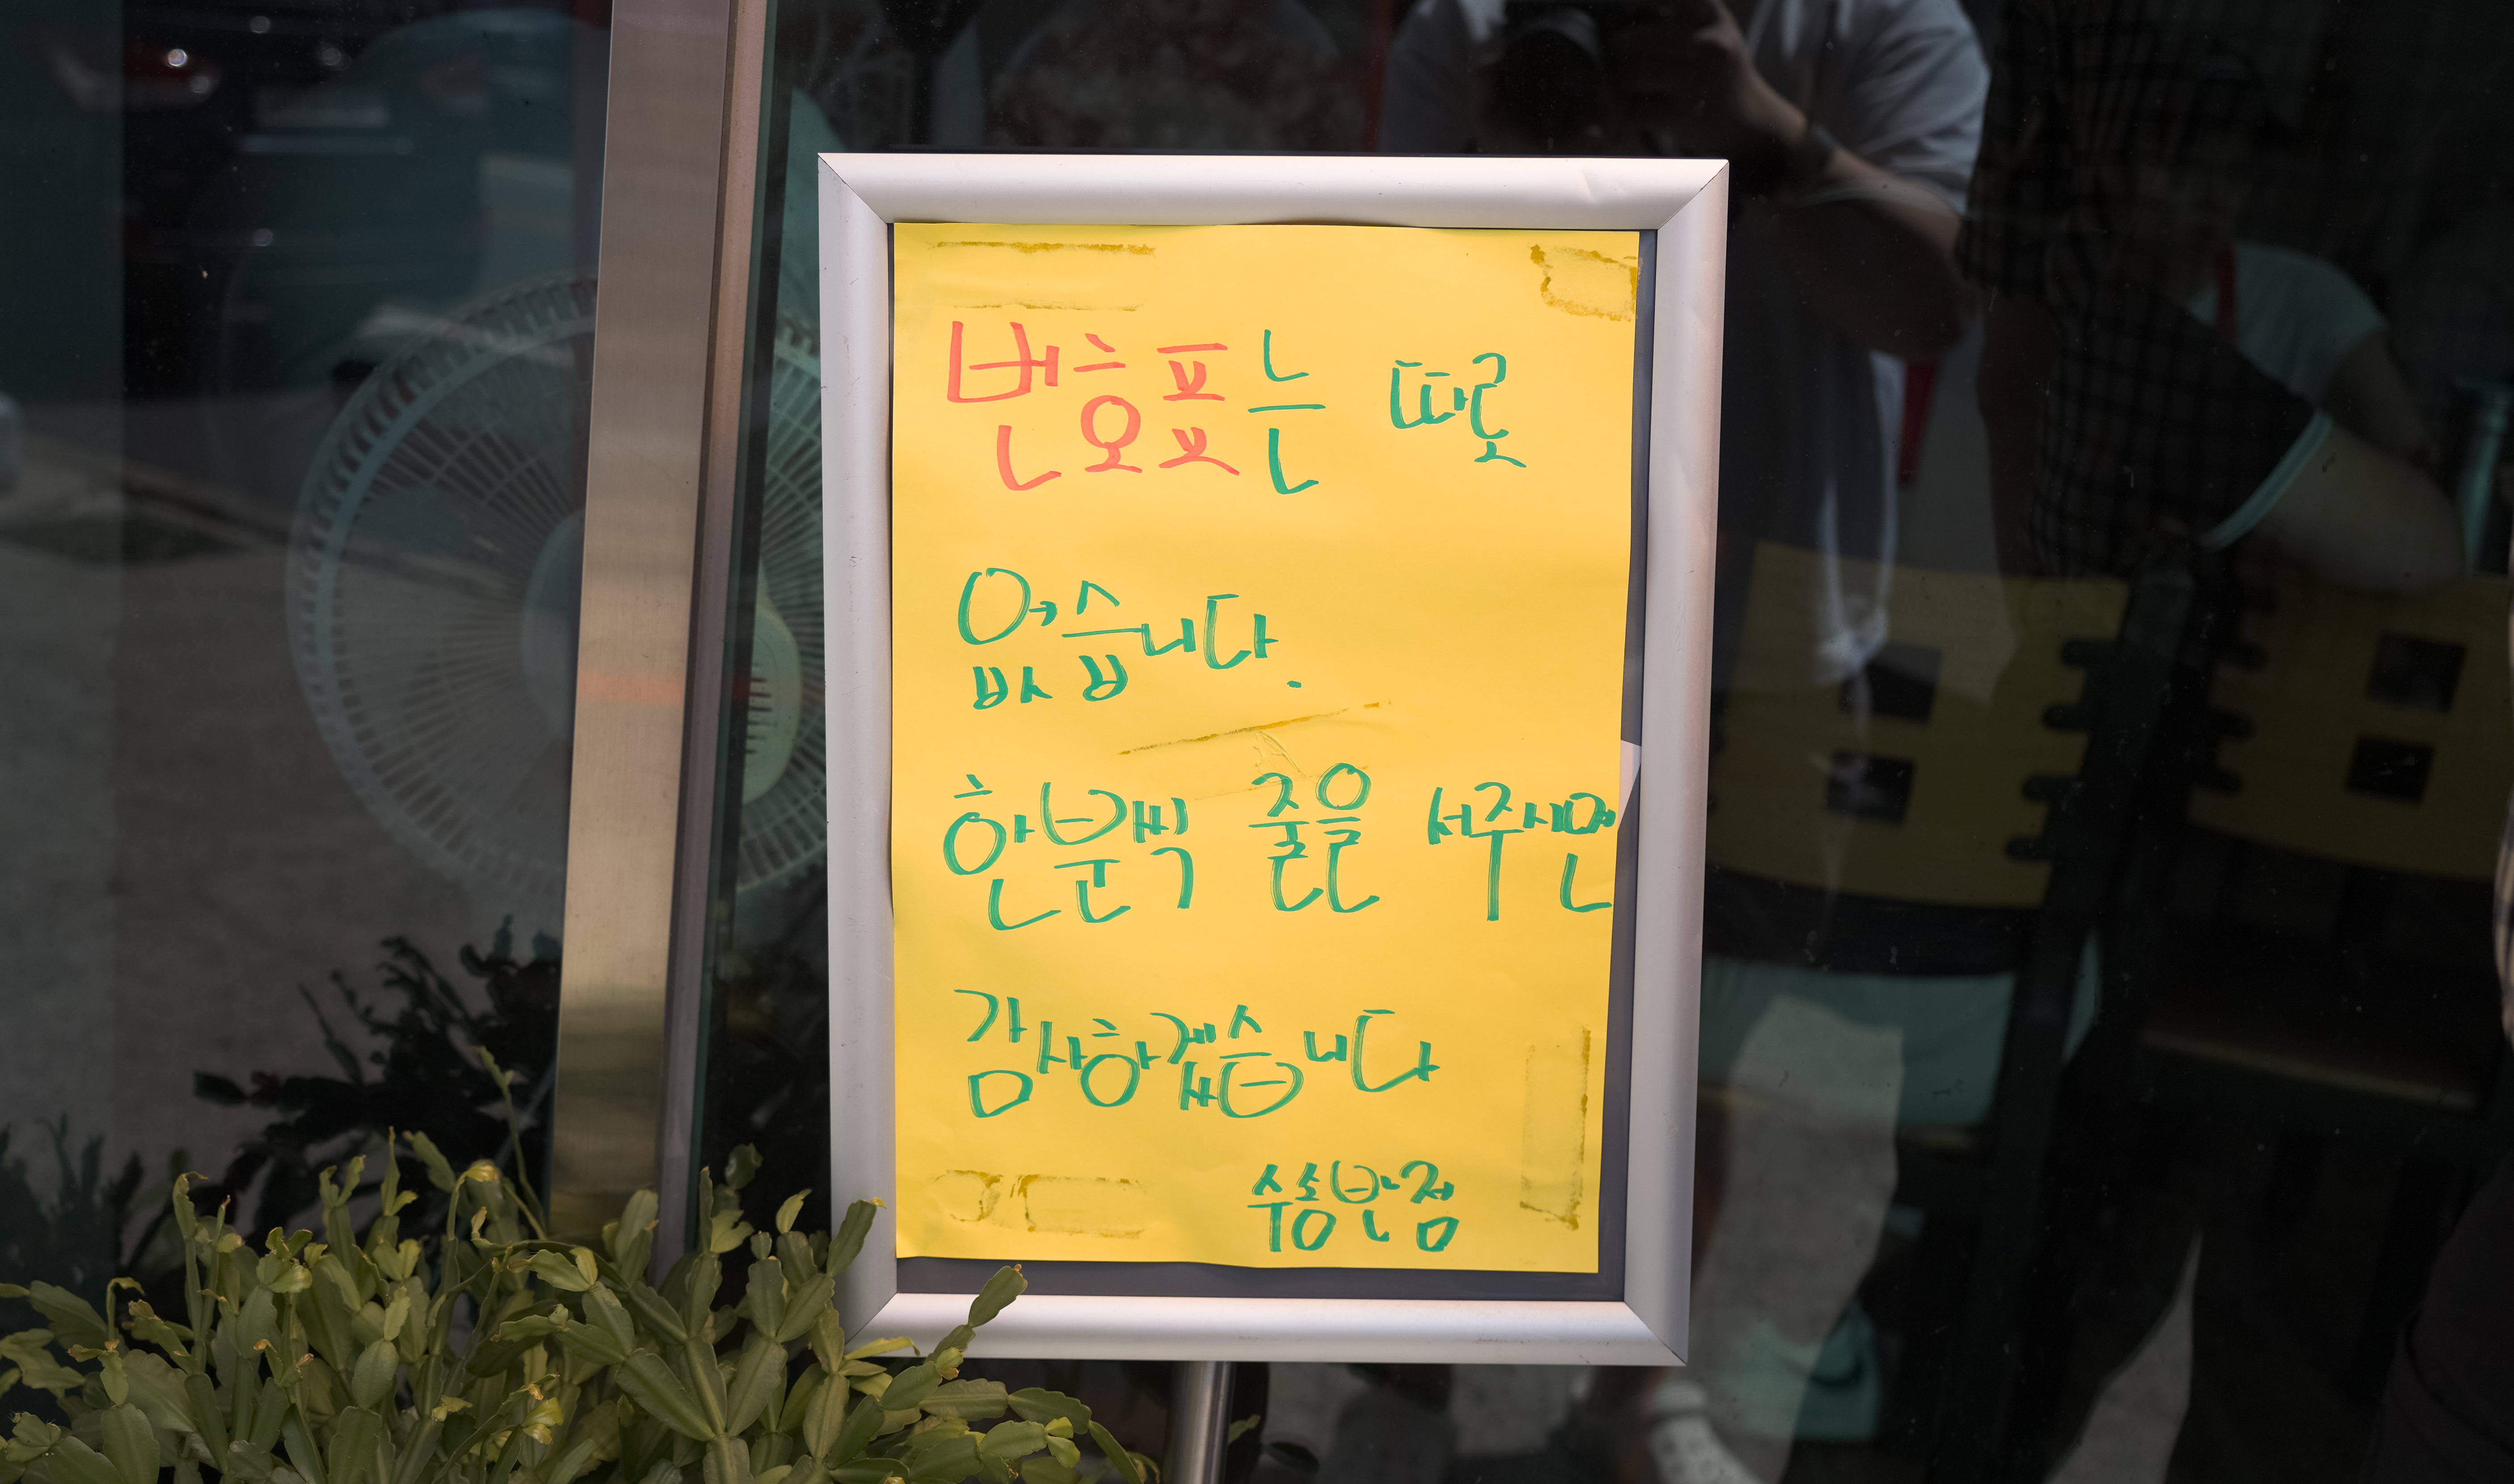 번호표는 따로
없습니다.
한분씩 줄을 서주시면
감사하겠습니다
수송반점